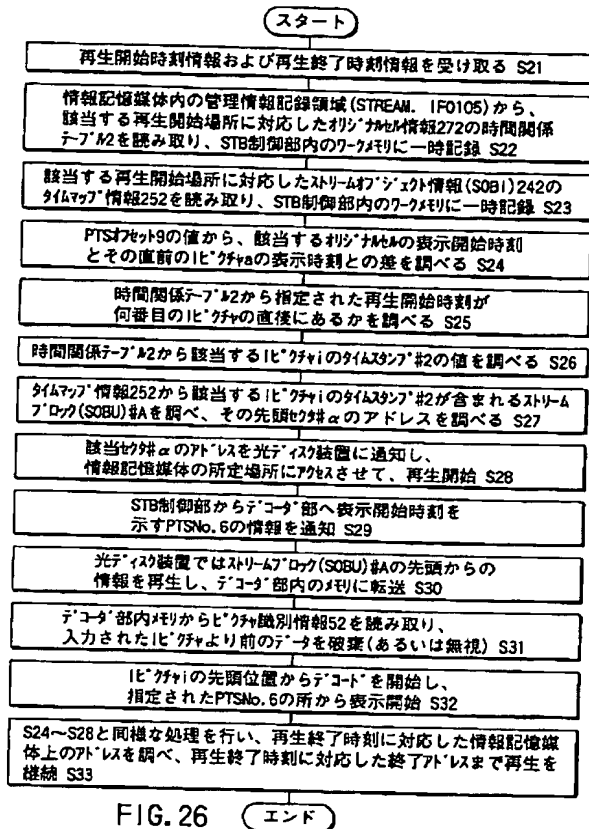 スタート
再生開始時刻情報および再生終了時刻情報を受け取る S21
情報記憶媒体内の管理情報記録領域(STREAM. IFO105)から、
該当する再生開始場所に対応したオリジナルセル情報272の時間関係
テーブル2を読み取り、STB制御部内のワークメモリに一時記録 S22
該当する再生開始場所に対応したストリームオブジェクト情報(SOBI)242の
タイムマップ情報252を読み取り、STB制御部内のワークメモリに一時記録 S23
PTSオフセット9の値から、該当するオリジナルセルの表示開始時刻
とその直前のIピクチャaの表示時刻との差を調べる S24
時間関係テーブル2から指定された再生開始時刻が
何番目のIピクチャの直後にあるかを調べる S25
時間関係テーブル2から該当するIピクチャiのタイムスタンプ#2の値を調べる S26
タイムマップ情報252から該当するIピクチャiのタイムスタンプ#2が含まれるストリーム
ブロック(SOBU)#Aを調べ、その先頭セクタ#αのアドレスを調べる S27
該当セクタ#αのアドレスを光ディスク装置に通知し、
情報記憶媒体の所定場所にアクセスさせて、再生開始 S28
STB制御部からデコーダ部へ表示開始時刻を
示すPTSNo.6の情報を通知 S29
光ディスク装置ではストリームブロック(SOBU)#Aの先頭からの
情報を再生し、デコーダ部内のメモリに転送 S30
デコーダ部内メモリからピクチャ識別情報52を読み取り、
入力されたIピクチャより前のデータを破棄(あるいは無視) S31
Iピクチャiの先頭位置からデコードを開始し、
指定されたPTSNo.6の所から表示開始 S32
S24～S28と同様な処理を行い、再生終了時刻に対応した情報記憶媒
体上のアドレスを調べ、再生終了時刻に対応した終了アドレスまで再生を
継続 S33
FIG. 26
エンド